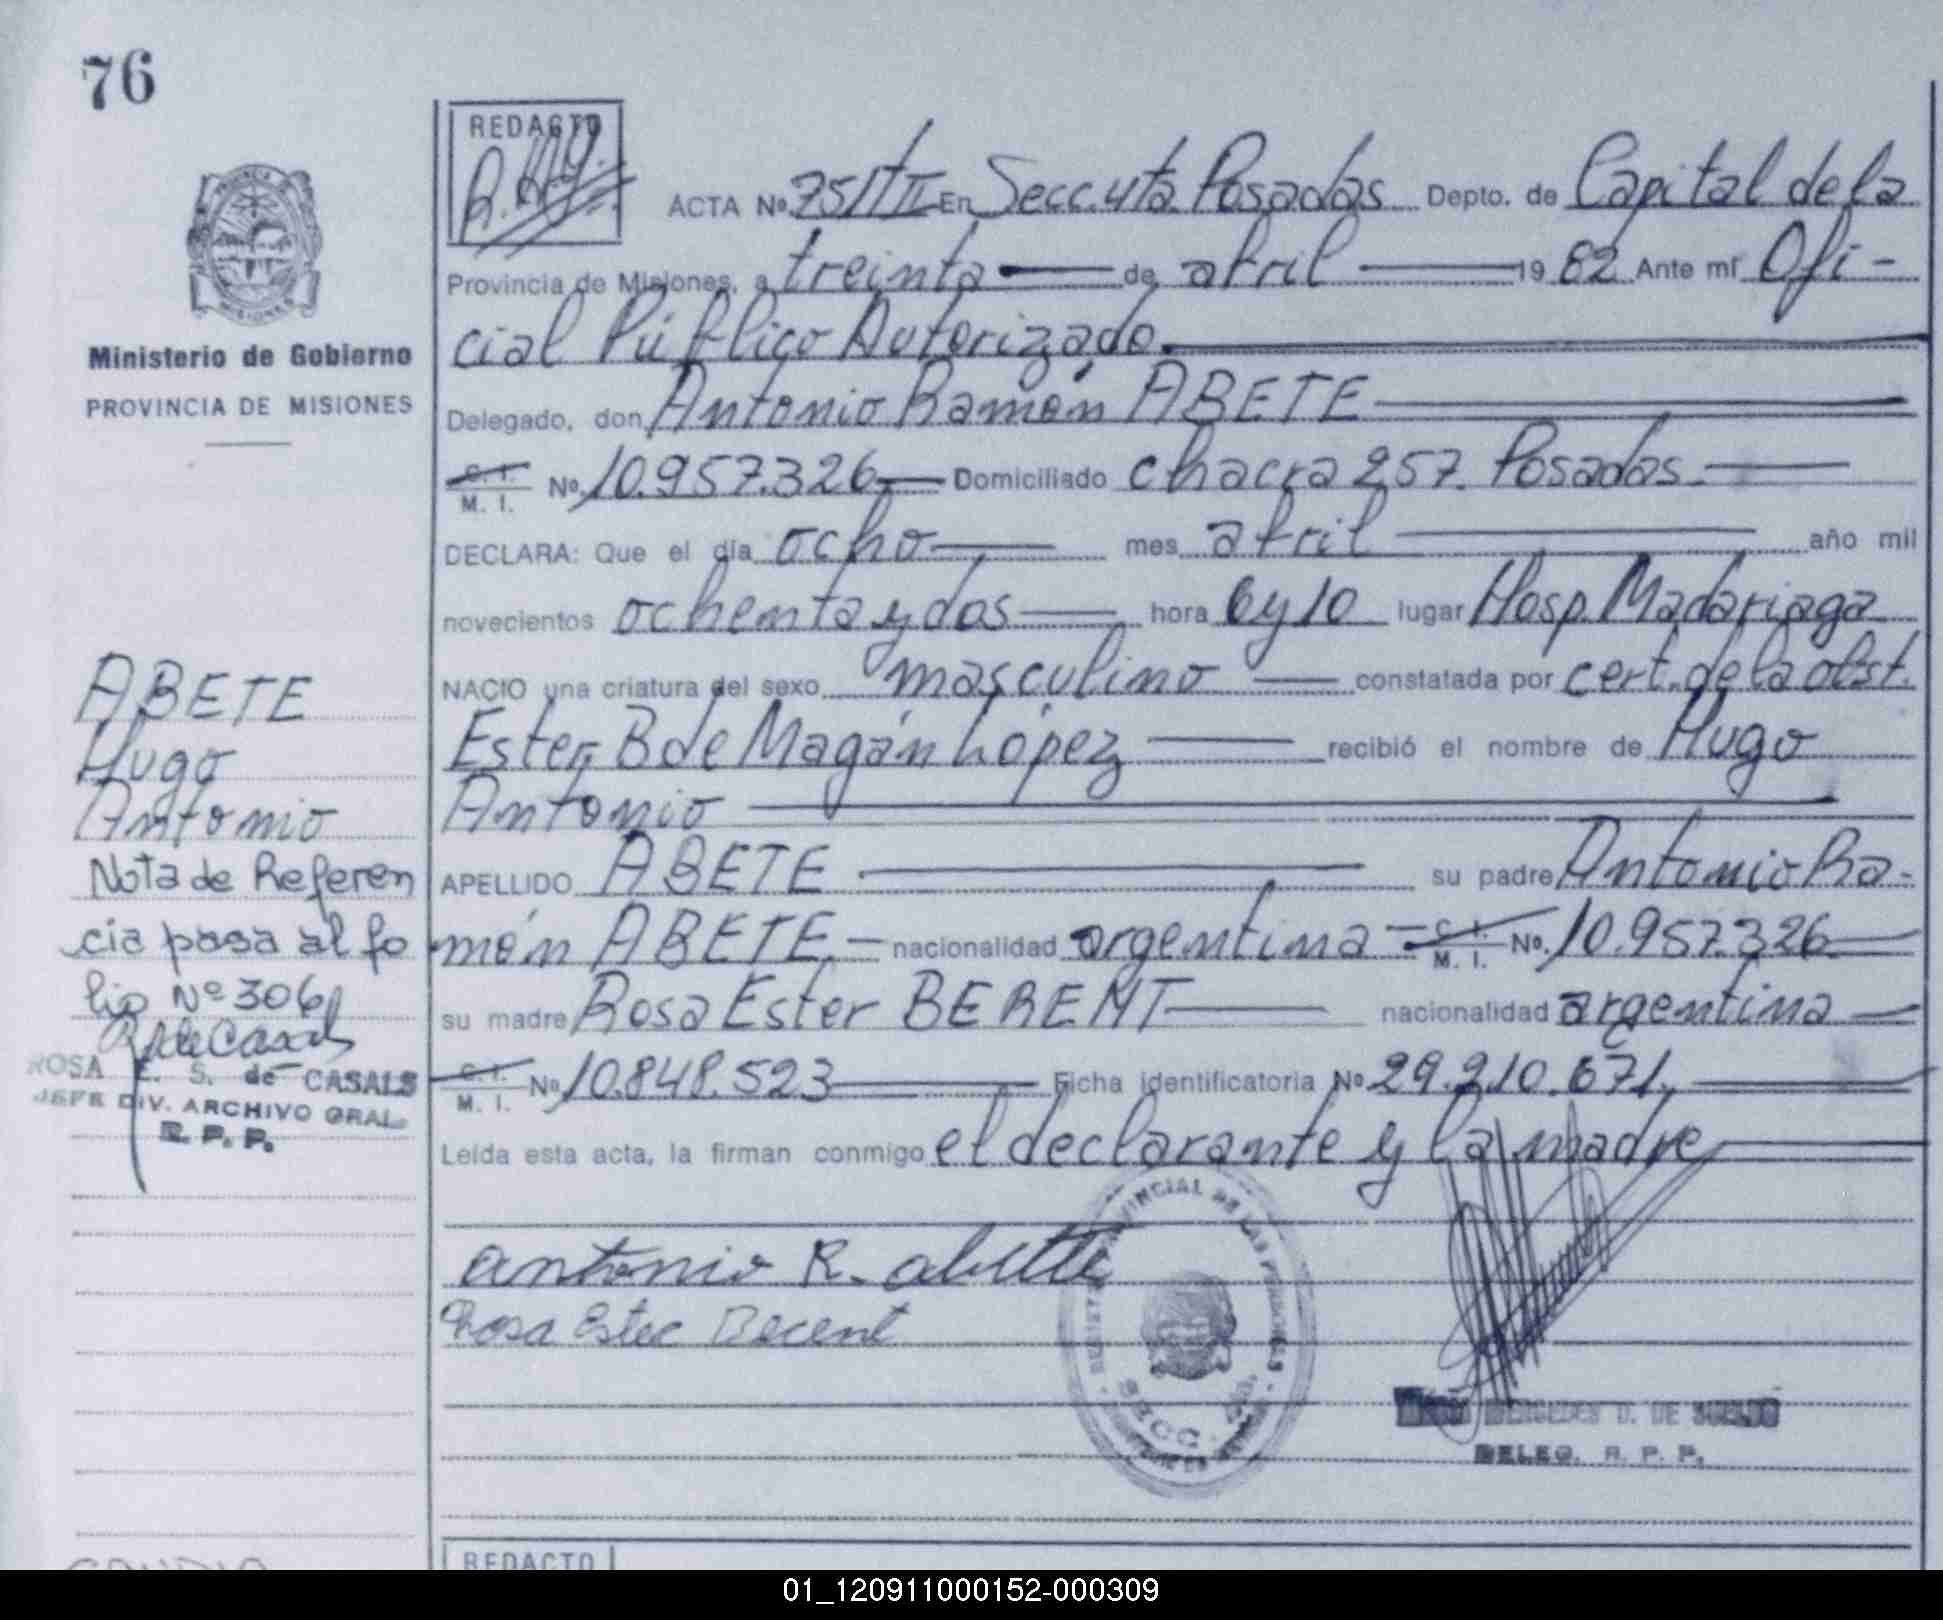 76
REDACTO
ACTA Nº 75/T/II En Secc. 4ta. Posadas Depto. de Capital de la
Provincia de Misiones, a treinta de abril 1982 Ante mí Ofi-
cial Público Autorizado.
Delegado, don Antonio Ramón ABETE
C. I.
M. I. Nº 10.957.326 Domiciliado chacra 257. Posadas.
DECLARA: Que el día ocho mes abril año mil
novecientos ochenta y dos hora 6 y 10 lugar Hosp. Madariaga
NACIO una criatura del sexo masculino constatada por cert. de la obst.
Ester B de Magán López recibió el nombre de Hugo
Antonio
APELLIDO ABETE su padre Antonio Ra-
món ABETE nacionalidad argentina C. I. M. I. Nº. 10.957.326
su madre Rosa Ester BERENT nacionalidad argentina
C. I. M. I. Nº 10.848.523 Ficha identificatoria Nº 29.210.671.
Leída esta acta, la firman conmigo el declarante y la madre
Antonio R. abette
Rosa Ester Berent
REGISTRO PROVINCIAL DE LAS PERSONAS
SECC. 4ta.
MERCEDES D. DE
DELEG. R. P. P.
PROVINCIA DE MISIONES
Ministerio de Gobierno
PROVINCIA DE MISIONES
ABETE
Hugo
Antonio
Nota de Referen
cia pasa al fo
lio Nº 306
R S de Casals
ROSA E. S. de CASALS
JEFE DIV. ARCHIVO GRAL.
R. P. P.
REDACTO
01_120911000152-000309